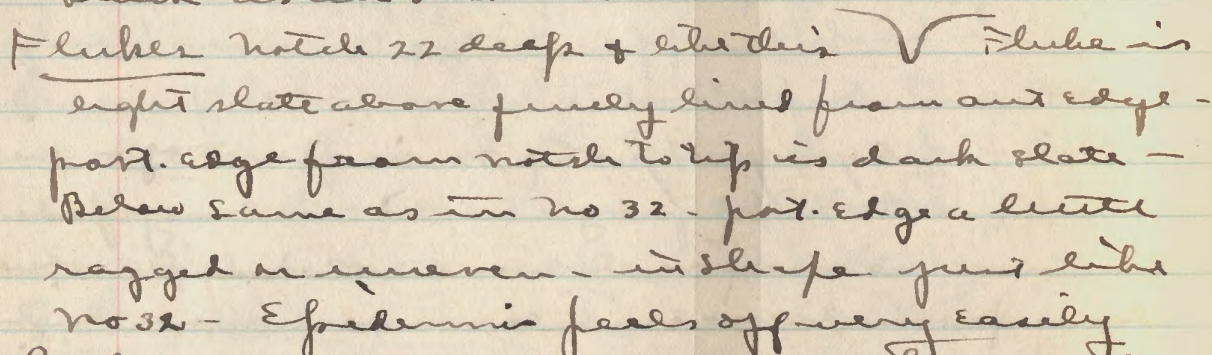 Flukes notch 22 deep & like this V Fluke is
light slate above finely lined from ant edge -
post. edge from notch to tip is dark slate -
Below same as in No 32 - post. edge a little
ragged or uneven - in shape just like
No 32 - Epidermis peels off very easily